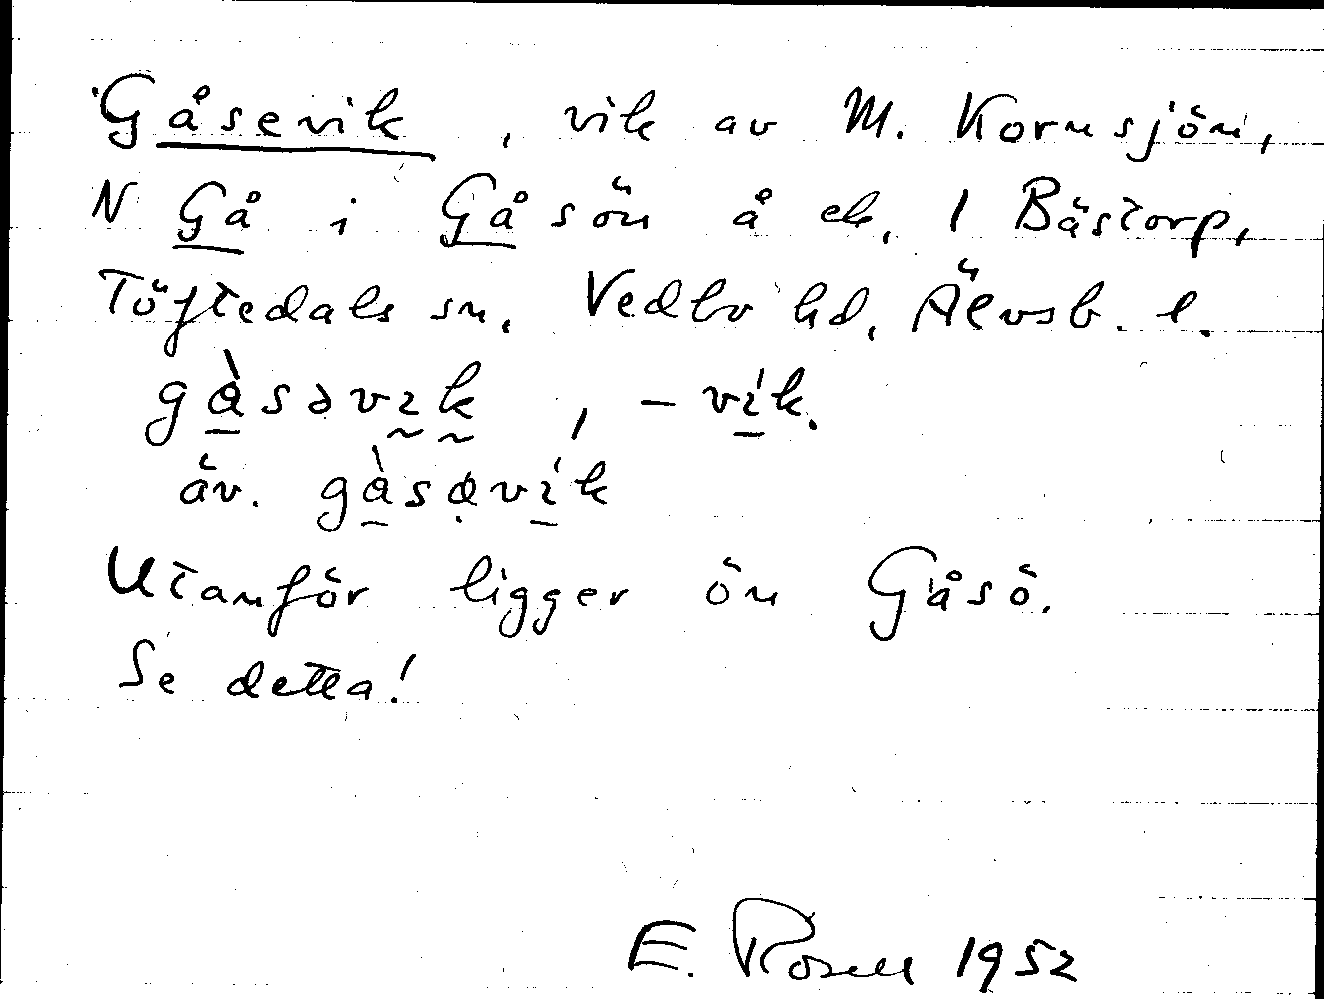 Gåsevik, vik av M. Kornsjön,
N Gå i Gåsön å ek. 1 Bästorp,
Töftedals sn. Vedbo hd, Älvsb. l.
gå̀səvık, -vı́k.
äv. gå̀səvı́k
Utanför ligger ön Gåsö.
Se detta!
E. Rosell 1952